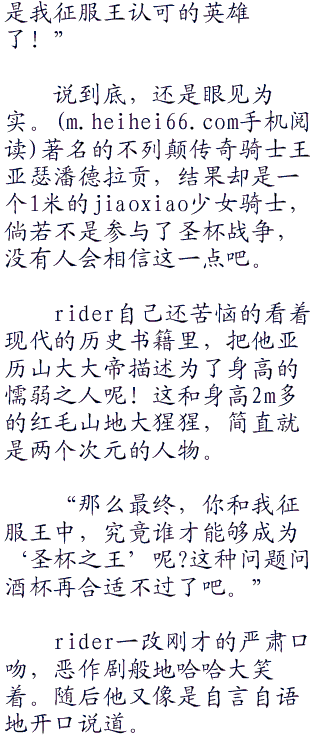 是我征服王认可的英雄
了！”
说到底，还是眼见为
实。(m.heihei66.com手机阅
读)著名的不列颠传奇骑士王
亚瑟潘德拉贡，结果却是一
个1米的jiaoxiao少女骑士，
倘若不是参与了圣杯战争，
没有人会相信这一点吧。
rider自己还苦恼的看着
现代的历史书籍里，把他亚
历山大大帝描述为了身高的
懦弱之人呢！这和身高2m多
的红毛山地大猩猩，简直就
是两个次元的人物。
“那么最终，你和我征
服王中，究竟谁才能够成为
‘圣杯之王’呢?这种问题问
酒杯再合适不过了吧。”
rider一改刚才的严肃口
吻，恶作剧般地哈哈大笑
着。随后他又像是自言自语
地开口说道。